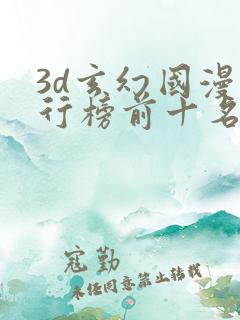 3d玄幻國漫
行榜前十名
寇勤
未经同意禁止转载